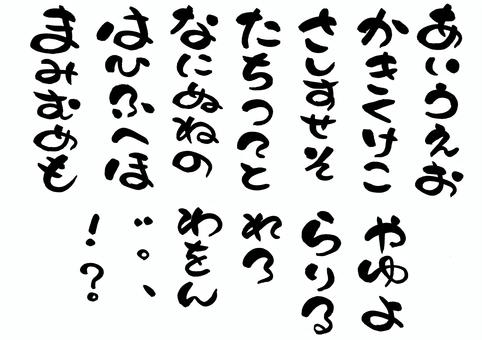 あいうえお
かきくけこ
さしすせそ
たちつてと
なにぬねの
はひふへほ
まみむめも
やゆよ
らりる
れろ
わをん
゛。、
！？